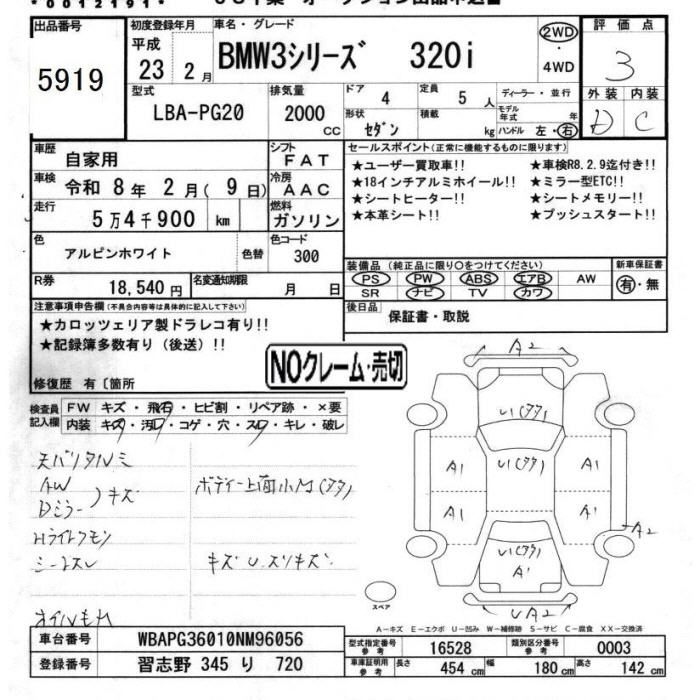 出品番号 初度登録年月 車名・グレード 評価点
5919 平成 23 2月 BMW3シリーズ 320i 2WD・4WD 3
型式 排気量 ドア 4 定員 5人 ディーラー・並行 外装 内装
LBA-PG20 2000 CC 形状 セダン 積載 kg モデル年式 年 D C
ハンドル 左・右
車歴 自家用 シフト FAT セールスポイント(正常に機能するものに限ります)
車検 令和 8年 2月(9日) 冷房 AAC ★ユーザー買取車!! ★車検R8.2.9迄付き!!
走行 5万4千900 km 燃料 ガソリン ★18インチアルミホイール!! ★ミラー型ETC!!
★シートヒーター!! ★シートメモリー!!
★本革シート!! ★プッシュスタート!!
色 アルピンホワイト 色替 色コード 300
装備品(純正品に限り〇をつけてください) 新車保証書
R券 18,540円 名変通知期限 月 日 PS PW ABS エアB AW 有・無
SR ナビ TV カワ
注意事項申告欄(不具合内容等は具体的に記入して下さい) 後日品 保証書・取説
★カロッツェリア製ドラレコ有り!!
★記録簿多数有り(後送)!!
NOクレーム・売切
修復歴 有〔箇所
検査員記入欄 FW キズ・飛石・ヒビ割・リペア跡・×要
内装 キズ・汚レ・コゲ・穴・スレ・キレ・破レ
天バリタルミ
AW
Dミラー
キズ
ボディー上面小凹(タタ)
Hライトクモリ
シートスレ
キズ U.スリキズ
オイルもれ
A2
U(タタ)
A1 U(タタ) A1
A1 A1
A2
U(タタ)
A1
スペア
UA2
A-キズ E-エクボ U-凹み W-補修跡 S-サビ C-腐食 XX-交換済
車台番号 WBAPG36010NM96056 型式指定番号 参考 16528 類別区分番号 参考 0003
登録番号 習志野 345 り 720 車庫証明用 参考 長さ 454 cm 幅 180 cm 高さ 142 cm